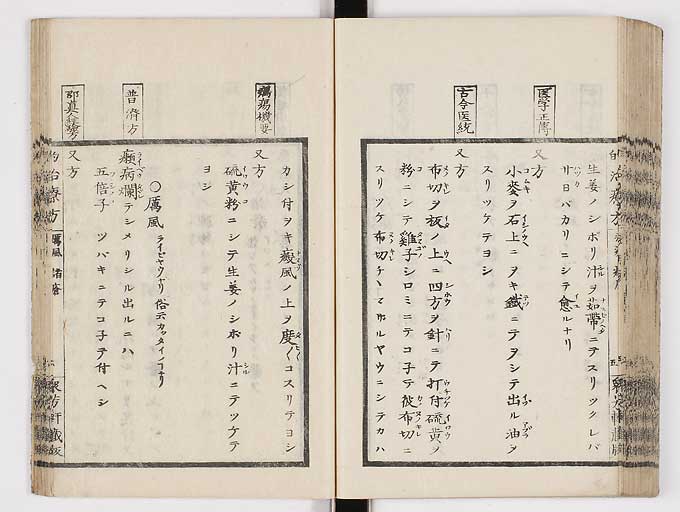 生姜ノシボリ汁ヲ茄帶ニテスリツクレバ
サヨバカリニシテ愈ルナリ
医学正傳
又方
小麥ヲ石上ニヲキ鐵ニテヲシテ出ル油ヲ
スリツケテヨシ
古今医統
又方
布切ヲ板ノ上ニ四方ヲ針ニテ打付硫黄ヲ
粉ニシテ雞子シロミニテコ子テ彼布切ニ
スリツケ布切チヾマルヤウニシテカハ
カシ付ヲキ癜風ノ上ヲ度〱コスリテヨシ
瘍機要
又方
硫黄粉ニシテ生姜ノシボリ汁ニテツケテ
ヨシ
〇厲風 ライビヤウナリ俗云カツタイノコナリ
普濟方
癩病爛テシメリシル出ルニハ
五倍子 ツバキニテコ子テ付ヘシ
又方
治療方
厲風 諸瘡
衆方軒藏板